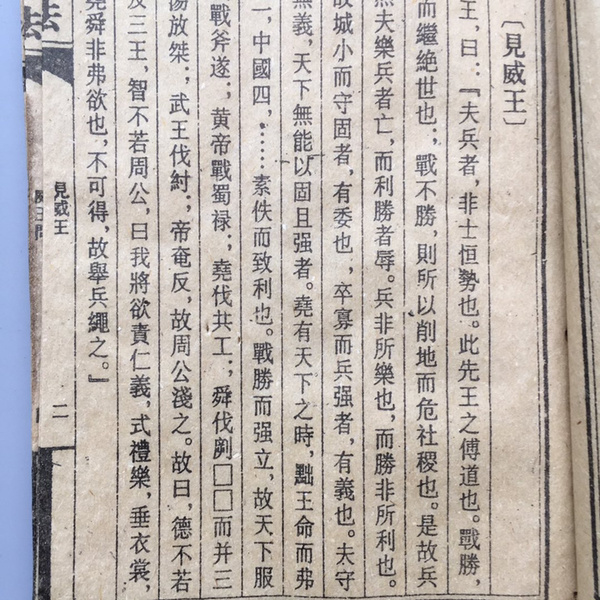 〔見威王〕
王，曰：「夫兵者，非士恒勢也。此先王之傅道也。戰勝，
而繼絶世也；戰不勝，則所以削地而危社稷也。是故兵
然夫樂兵者亡，而利勝者辱。兵非所樂也，而勝非所利也。
故城小而守固者，有委也，卒寡而兵强者，有義也。夫守
無義，天下無能以固且强者。堯有天下之時，黜王命而弗
一，中國四，……素佚而致利也。戰勝而强立，故天下服
戰斧遂；黄帝戰蜀禄；堯伐共工；舜伐劌□□而并三
湯放桀；武王伐紂；帝奄反，故周公淺之。故曰，德不若
及三王，智不若周公，曰我將欲責仁義，式禮樂，垂衣裳，
堯舜非弗欲也，不可得，故舉兵繩之。」
法
見威王
二